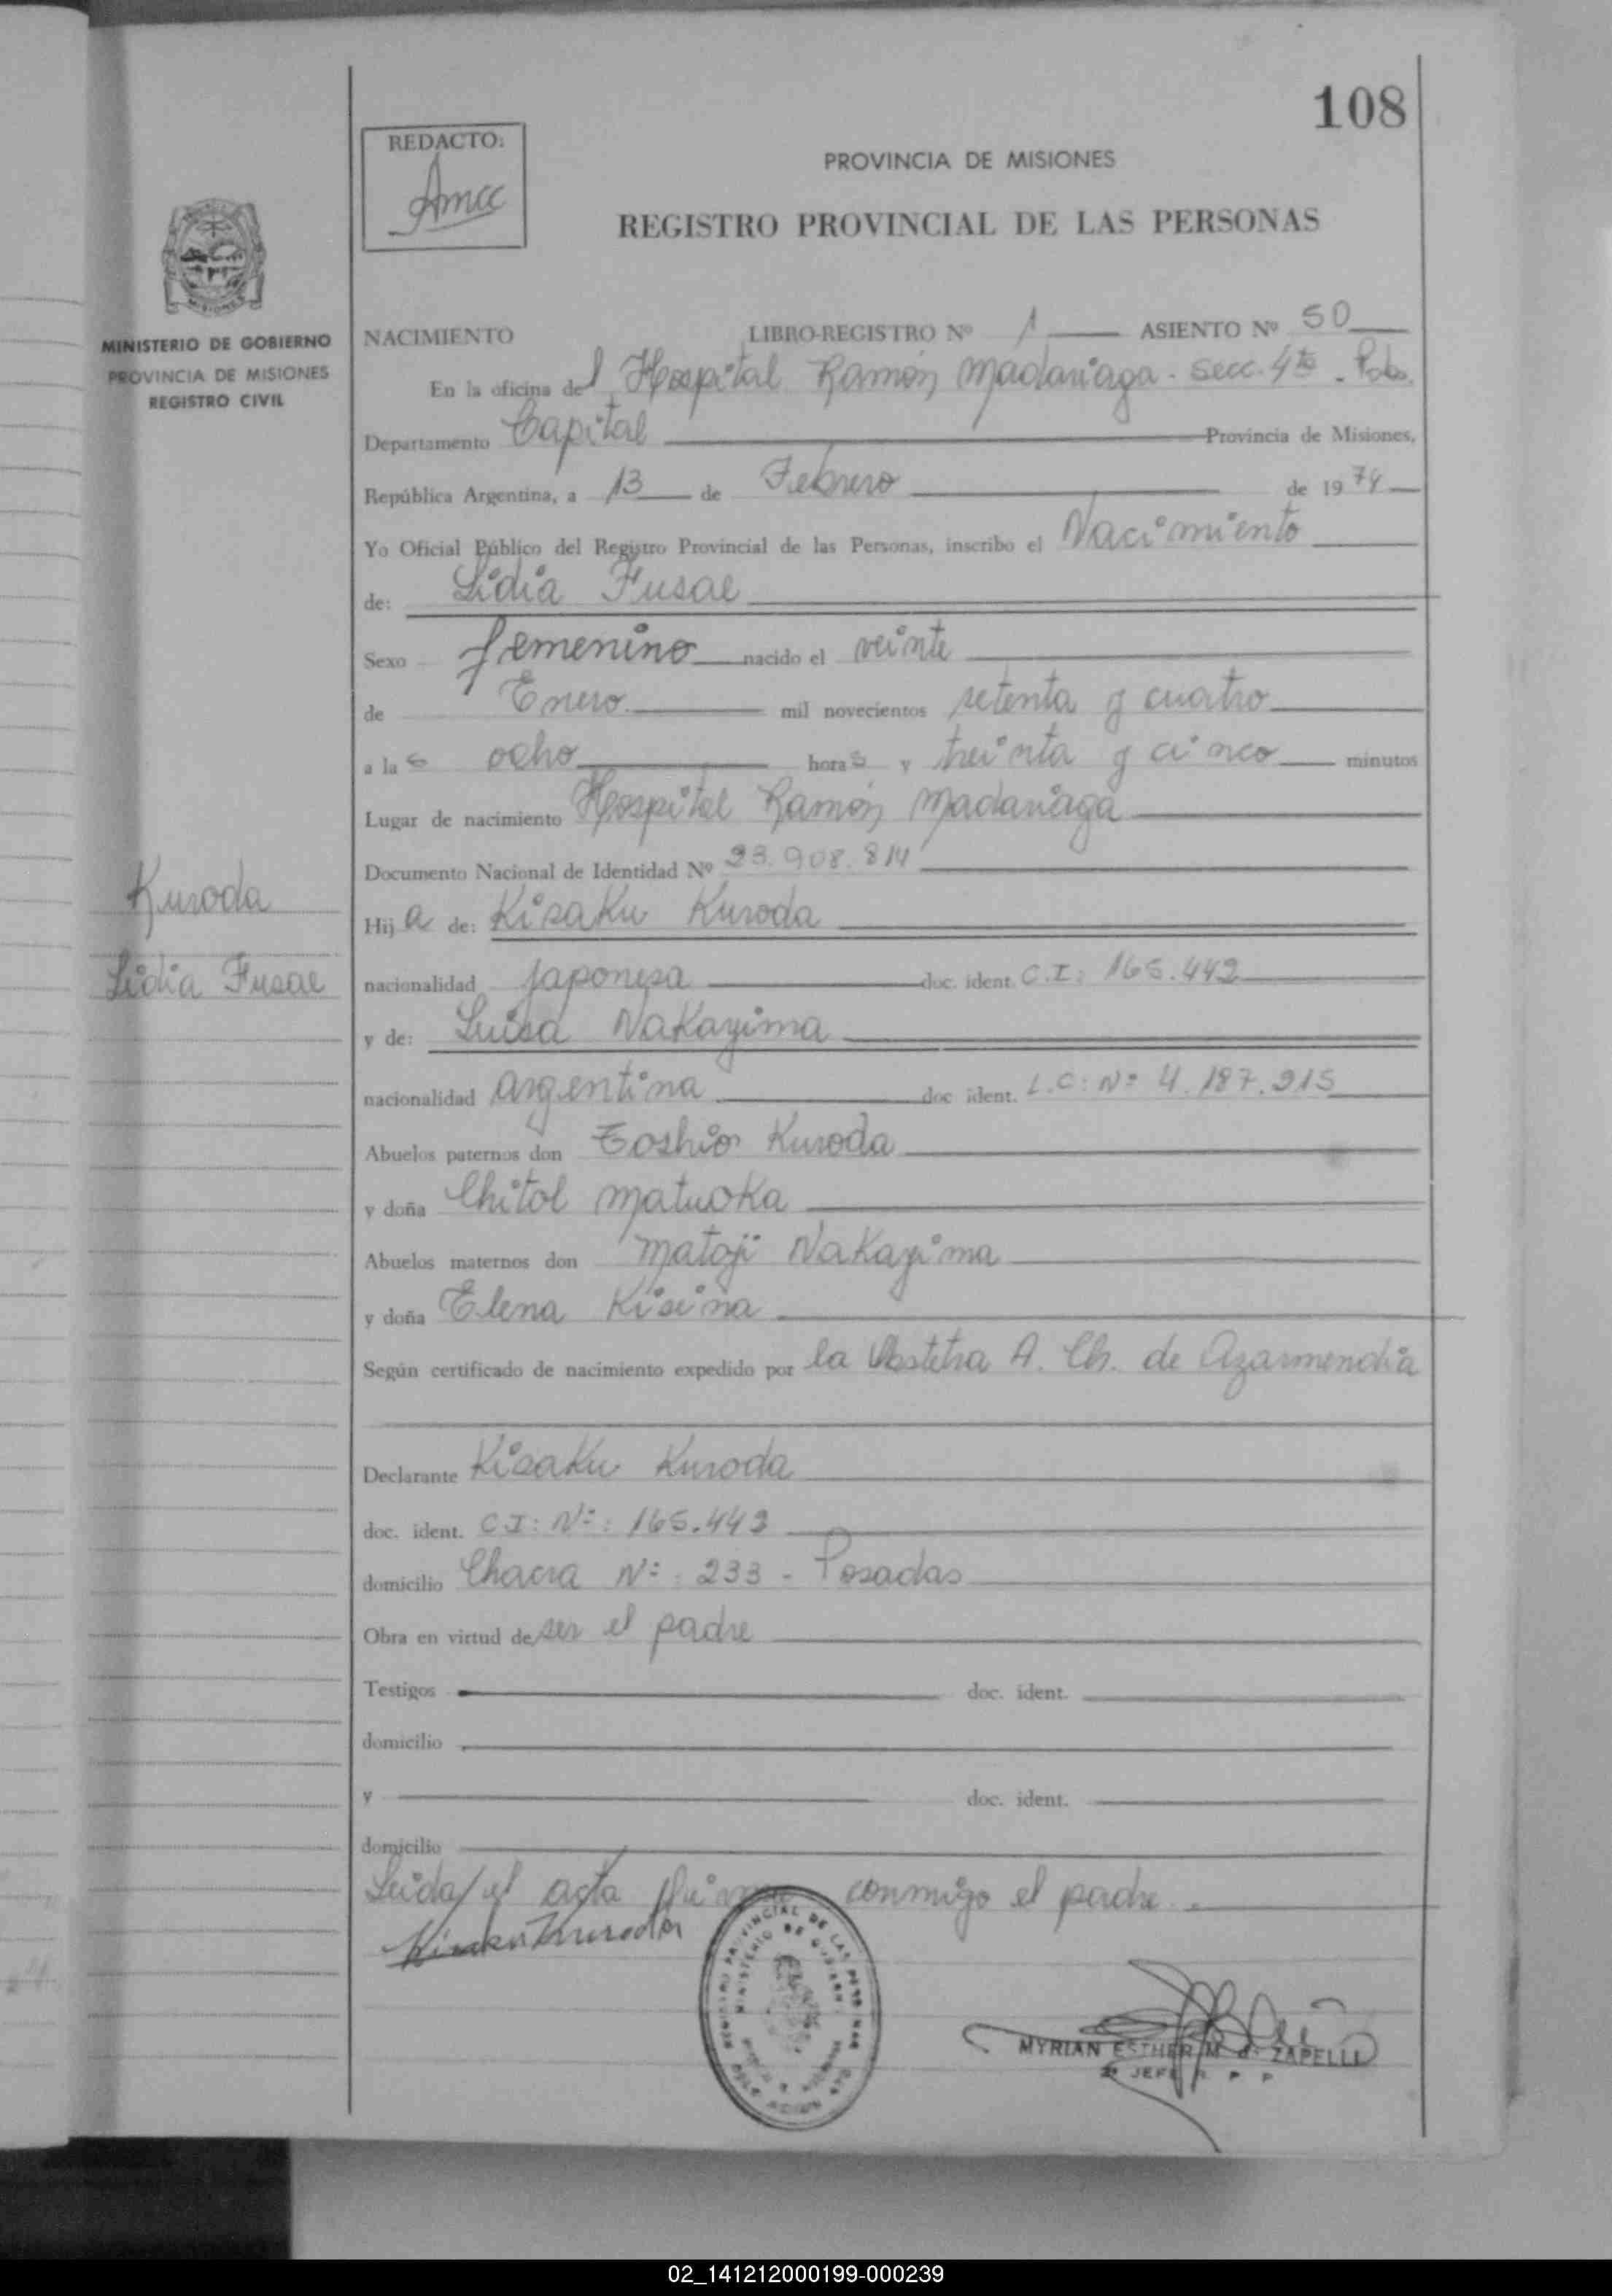 108
REDACTO:
Amcc
PROVINCIA DE MISIONES
REGISTRO PROVINCIAL DE LAS PERSONAS
MISIONES
MINISTERIO DE GOBIERNO
PROVINCIA DE MISIONES
REGISTRO CIVIL
NACIMIENTO LIBRO-REGISTRO Nº 1 ASIENTO Nº 50
En la oficina del Hospital Ramón Madariaga - Secc. 4ta - Pdas.
Departamento Capital Provincia de Misiones,
República Argentina, a 13 de Febrero de 1974
Yo Oficial Público del Registro Provincial de las Personas, inscribo el Nacimiento
de: Lidia Fusae
Sexo femenino nacido el veinte
de Enero mil novecientos setenta y cuatro
a las ocho horas y treinta y cinco minutos
Lugar de nacimiento Hospital Ramón Madariaga
Documento Nacional de Identidad Nº 23.908.814
Kuroda
Hija de: Kisaku Kuroda
Lidia Fusae
nacionalidad japonesa doc. ident. C.I: 165.442
y de: Luisa Nakayima
nacionalidad argentina doc ident. L.C: Nº 4.187.915
Abuelos paternos don Toshio Kuroda
y doña Chitol Matuoka
Abuelos maternos don Matoji Nakayima
y doña Elena Kisina
Según certificado de nacimiento expedido por la Obstetra A. Ch. de Azarmendia
Declarante Kisaku Kuroda
doc. ident. C.I: Nº: 165.442
domicilio Chacra Nº: 233 - Posadas
Obra en virtud de ser el padre
Testigos doc. ident.
domicilio
y doc. ident.
domicilio
Leida el acta conmigo el padre.
Kisaku Kuroda
REGISTRO PROVINCIAL DE LAS PERSONAS
MINISTERIO DE GOBIERNO
MYRIAN ESTHER M. de ZAPELLI
2º JEFE R P P
02_141212000199-000239